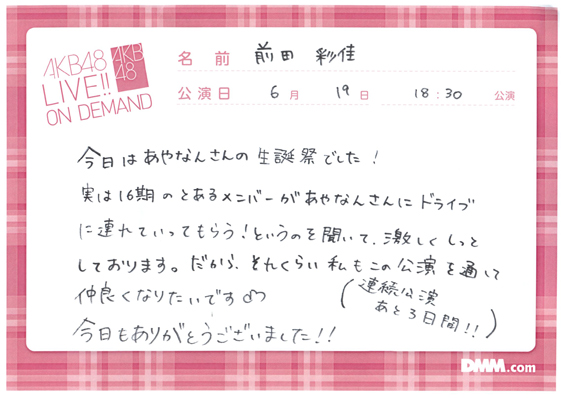 AKB48
LIVE!!
ON DEMAND
AKB
48
名前 前田 彩佳
公演日 6月 19日 18:30 公演
今日はあやなんさんの生誕祭でした!
実は16期のとあるメンバーがあやなんさんにドライブ
に連れていってもらう!というのを聞いて、激しくしっと
しております。だから、それくらい私もこの公演を通して
仲良くなりたいです♡
(連続公演
あと3日間!!)
今日もありがとうございました!!
DMM.com